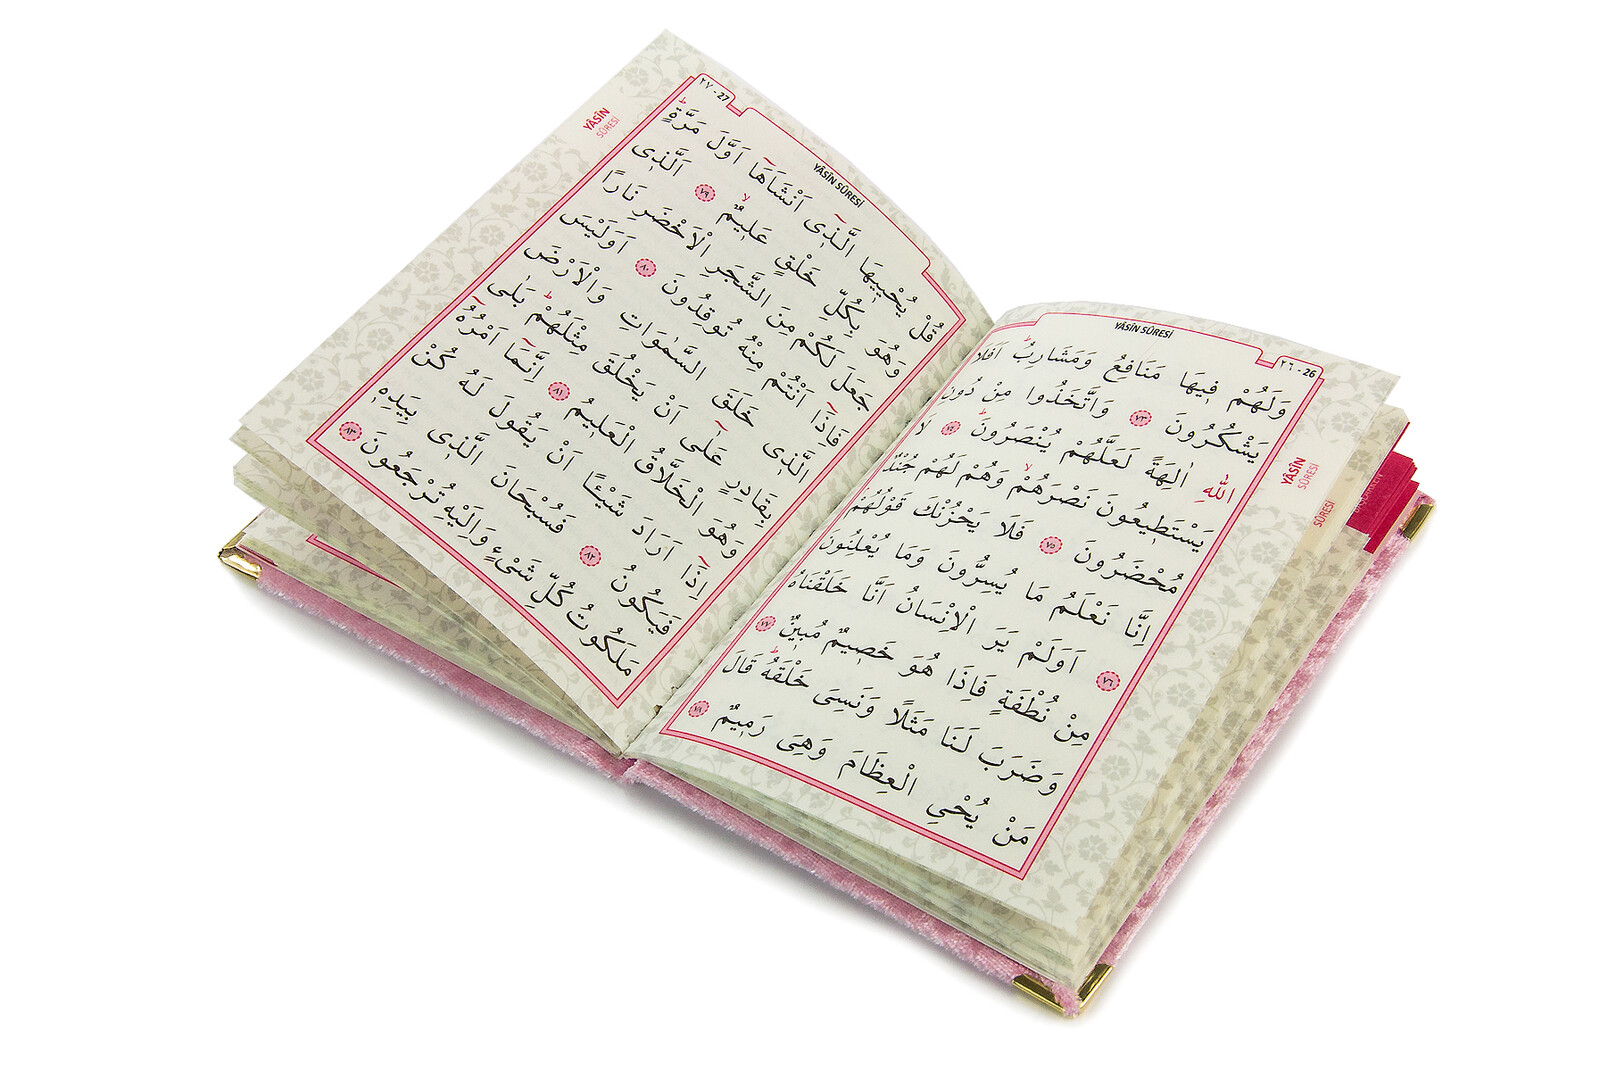 YÂSÎN SÛRESİ
٢٦ - 26
وَلَهُمْ فِيهَا مَنَافِعُ وَمَشَارِبُ اَفَلَا
يَشْكُرُونَ ٧٣ وَاتَّخَذُوا مِنْ دُونِ
اللّٰهِ اٰلِهَةً لَعَلَّهُمْ يُنْصَرُونَ ٧٤ لَا
يَسْتَطِيعُونَ نَصْرَهُمْ وَهُمْ لَهُمْ جُنْدٌ
مُحْضَرُونَ ٧٥ فَلَا يَحْزُنْكَ قَوْلُهُمْ
اِنَّا نَعْلَمُ مَا يُسِرُّونَ وَمَا يُعْلِنُونَ
٧٦ اَوَلَمْ يَرَ الْاِنْسَانُ اَنَّا خَلَقْنَاهُ
مِنْ نُطْفَةٍ فَاِذَا هُوَ خَصِيمٌ مُبِينٌ ٧٧
وَضَرَبَ لَنَا مَثَلًا وَنَسِىَ خَلْقَهُ قَالَ
مَنْ يُحْىِ الْعِظَامَ وَهِىَ رَمِيمٌ ٧٨
YÂSÎN
SÛRESİ
SÛRESİ
YÂSÎN SÛRESİ
٢٧ - 27
قُلْ يُحْيِيهَا الَّذِى اَنْشَاَهَا اَوَّلَ مَرَّةٍ
وَهُوَ بِكُلِّ خَلْقٍ عَلِيمٌ ٧٩ اَلَّذِى
جَعَلَ لَكُمْ مِنَ الشَّجَرِ الْاَخْضَرِ نَارًا
فَاِذَا اَنْتُمْ مِنْهُ تُوقِدُونَ ٨٠ اَوَلَيْسَ
الَّذِى خَلَقَ السَّمٰوَاتِ وَالْاَرْضَ
بِقَادِرٍ عَلٰى اَنْ يَخْلُقَ مِثْلَهُمْ بَلٰى
وَهُوَ الْخَلَّاقُ الْعَلِيمُ ٨١ اِنَّمَا اَمْرُهُ
اِذَا اَرَادَ شَيْئًا اَنْ يَقُولَ لَهُ كُنْ
فَيَكُونُ ٨٢ فَسُبْحَانَ الَّذِى بِيَدِهِ
مَلَكُوتُ كُلِّ شَىْءٍ وَاِلَيْهِ تُرْجَعُونَ ٨٣
YÂSÎN
SÛRESİ